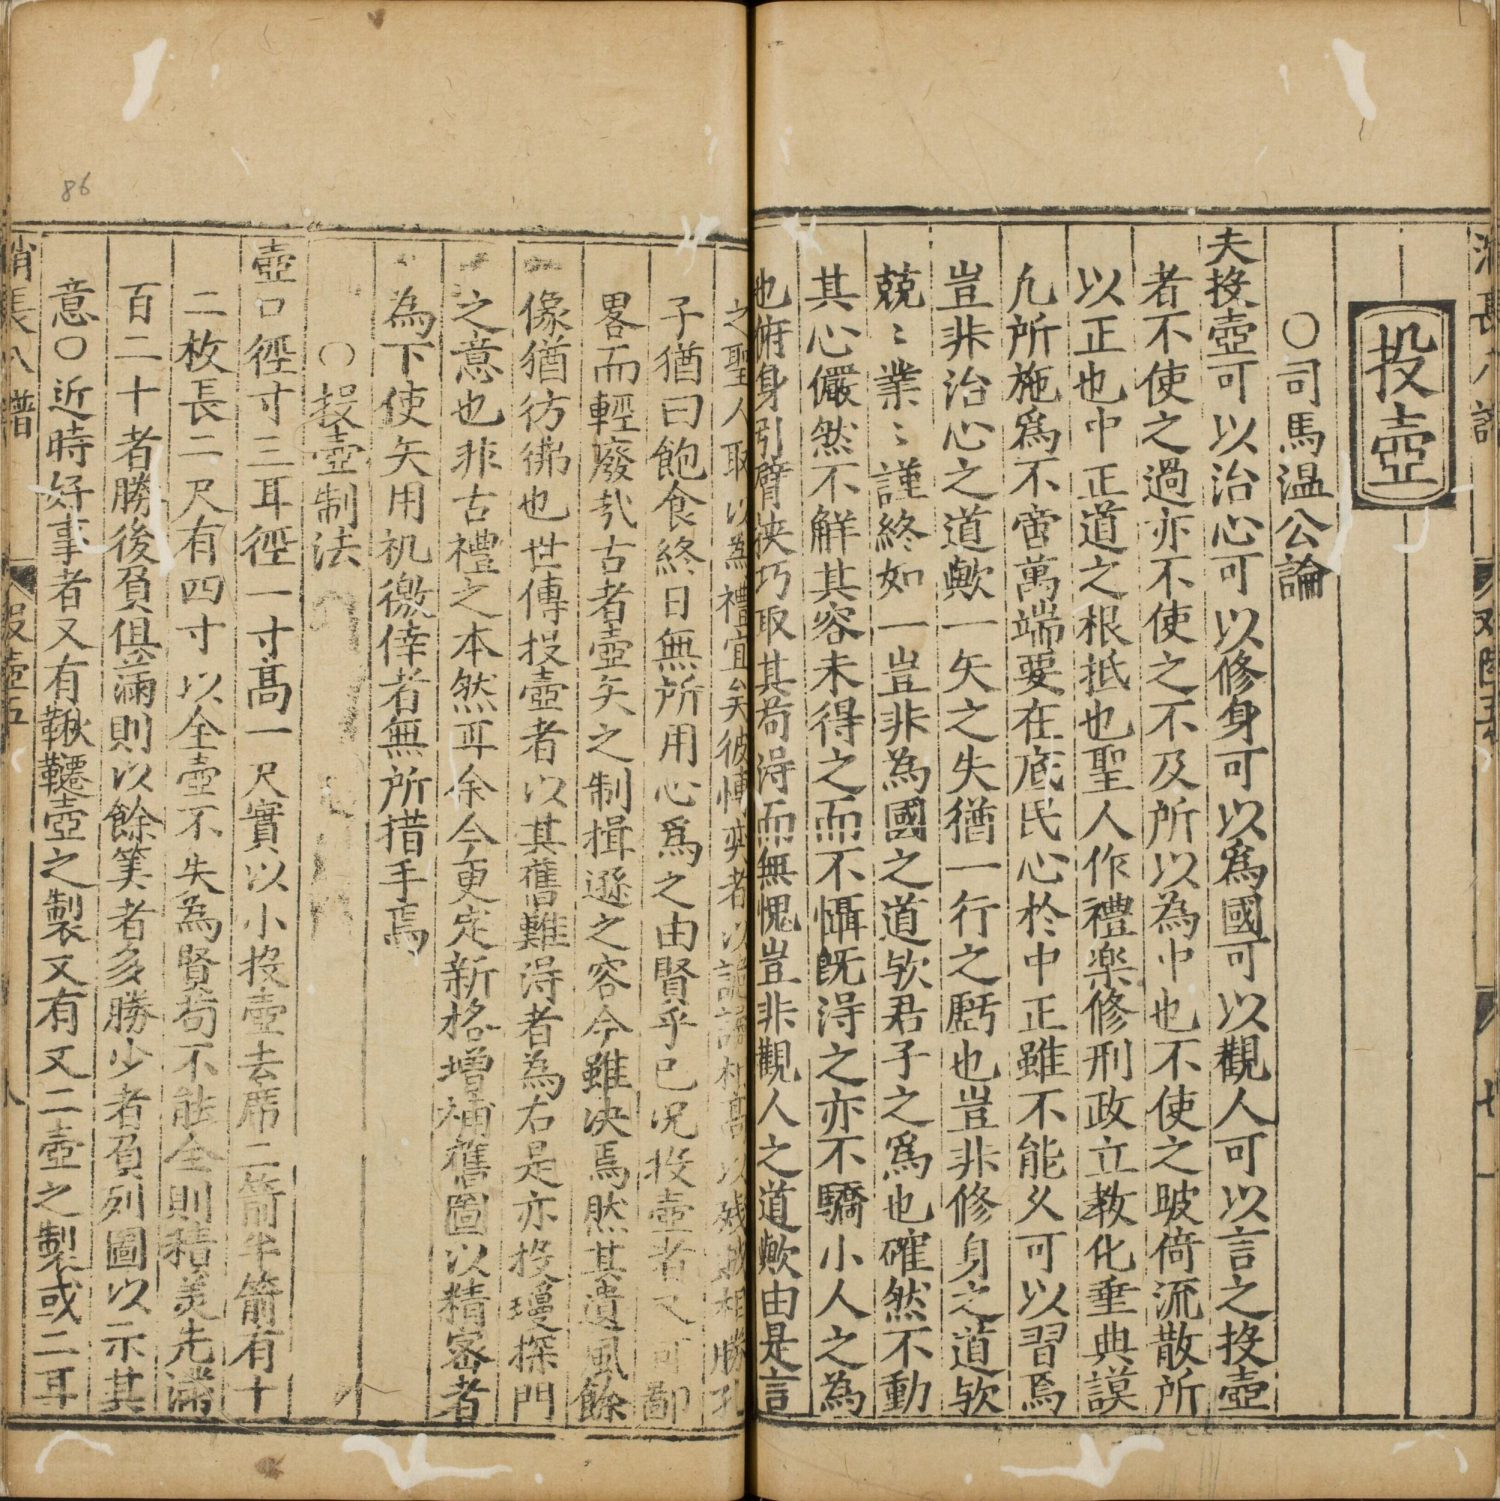 投壺
○司馬温公論
夫投壺可以治心可以修身可以爲國可以觀人可以言之投壺
者不使之過亦不使之不及所以為中也不使之陂倚流散所
以正也中正道之根抵也聖人作禮楽修刑政立教化垂典謨
凢所施爲不啻萬端要在底民心於中正雖不能久可以習焉
豈非治心之道歟一矢之失猶一行之虧也豈非修身之道欤
兢〻業〻謹終如一豈非為國之道欤君子之爲也確然不動
其心儼然不觧其容未得之而不懾既淂之亦不驕小人之為
也俯身引臂挾巧取其苟淂而無愧豈非觀人之道歟由是言
之聖人取以為禮宜矣彼愽奕者以詭譎相髙以残賊相勝孔
子猶曰飽食終日無所用心爲之由賢乎已况投壺者又可鄙
畧而輕廢㢤古者壺矢之制揖遜之容今雖决焉然其遺風餘
像猶彷彿也世傳投壺者以其舊難淂者為右是亦投瓊探門
之意也非古禮之本然耳余今更定新格増補舊圖以精宻者
為下使矢用机徼倖者無所措手焉
○投壺制法
壺口徑寸三耳徑一寸髙一尺實以小投壺去席二箭半箭有十
二枚長二尺有四寸以全壺不失為賢苟不能全則積筭先滿
百二十者勝後負俱滿則以餘筭者多勝少者負列圖以示其
意○近時好事者又有鞦韆壺之製又有又二壺之製或二耳